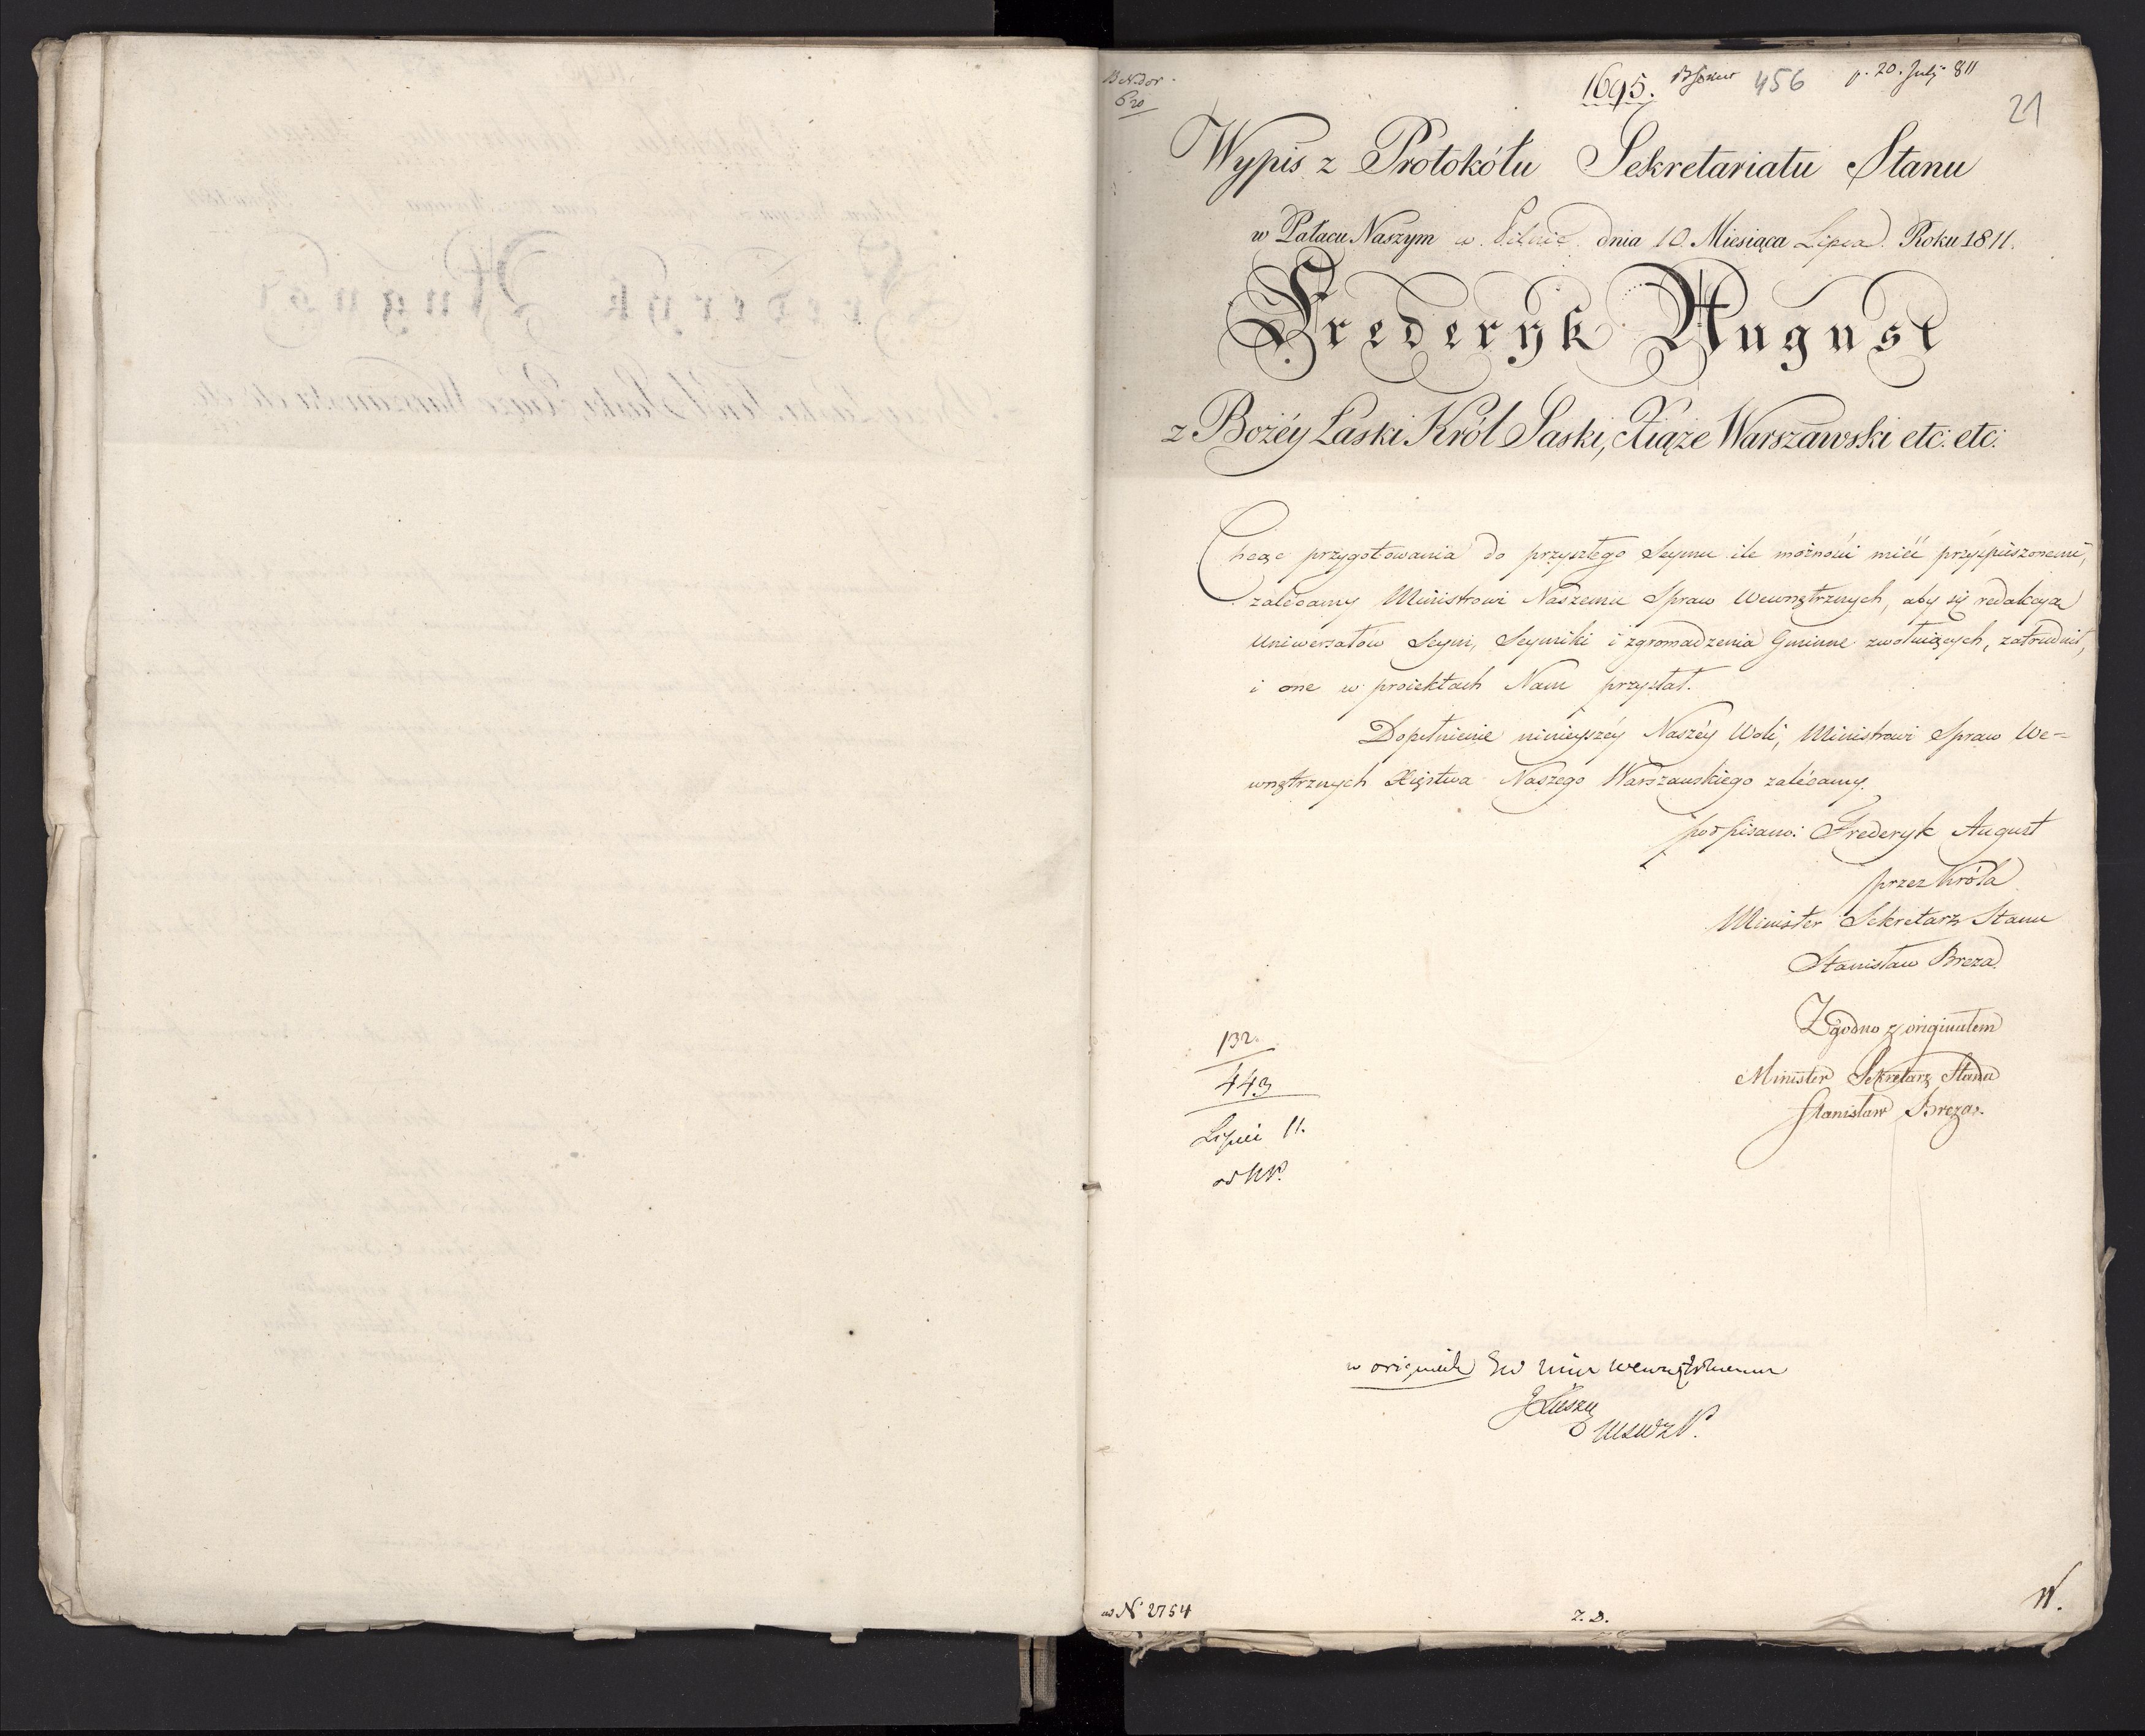 1695. 456 p. 20. July 811
21
Wypis z Protokółu Sekretariatu Stanu
w Pałacu Naszym w Pilnic dnia 10. Miesiąca Lipca Roku 1811.
Frederyk August
z Bożéy Łaski Król Saski, Xiąże Warszawski etc: etc:
Chcąc przygotowania do przyszłego Seymu ile możności mieć przyśpieszonemi,
zalécamy Ministrowi Naszemu Spraw Wewnętrznych, aby się redakcyą
Uniwersałów Seym, Seymiki i zgromadzenia Gminne zwołuiących, zatrudnił,
i one w proiektach Nam przysłał.
Dopełnienie ninieyszéy Naszéy Woli, Ministrowi Spraw We=
wnętrznych Xięstwa Naszego Warszawskiego zalécamy.
podpisano: Frederyk August
przez Króla
Minister Sekretarz Stanu
Stanisław Breza
Zgodno z originałem
Minister Sekretarz Stanu
Stanisław Breza.
132.
443
Lipca 11.
w originale
ad N 2754
Z. D.
W.